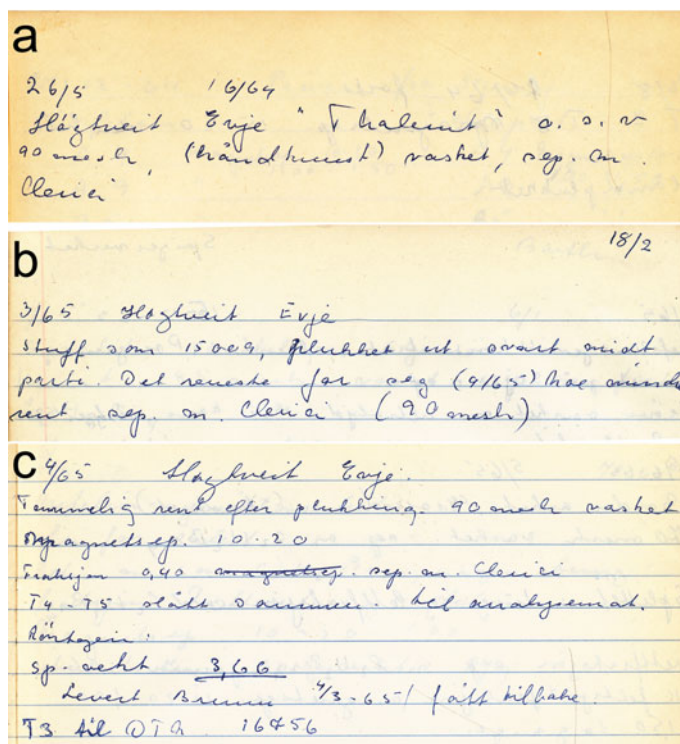 a
26/5 16/64
Høgtveit Evje "Thalenit" o. s. v
90 mesh, (håndknust) vasket, sep. m.
Clerici
b
18/2
3/65 Høgtveit Evje
Stuff som 15009, plukket ut svart midt
parti. Det reneste for seg (4/65) noe mindre
rent sep. m. Clerici (90 mesh)
c
4/65 Høgtveit Evje.
Temmelig rent efter plukking. 90 mesh vasket
magnetsep. 10-20
Fraksjon 0,40 magnetsep. sep. m. Clerici
T4-T5 slått sammen. til analysemat.
Röntgen.
Sp. vekt 3,66
Levert Bruun 4/3-65 / fått tilbake.
T3 til DTA 16756